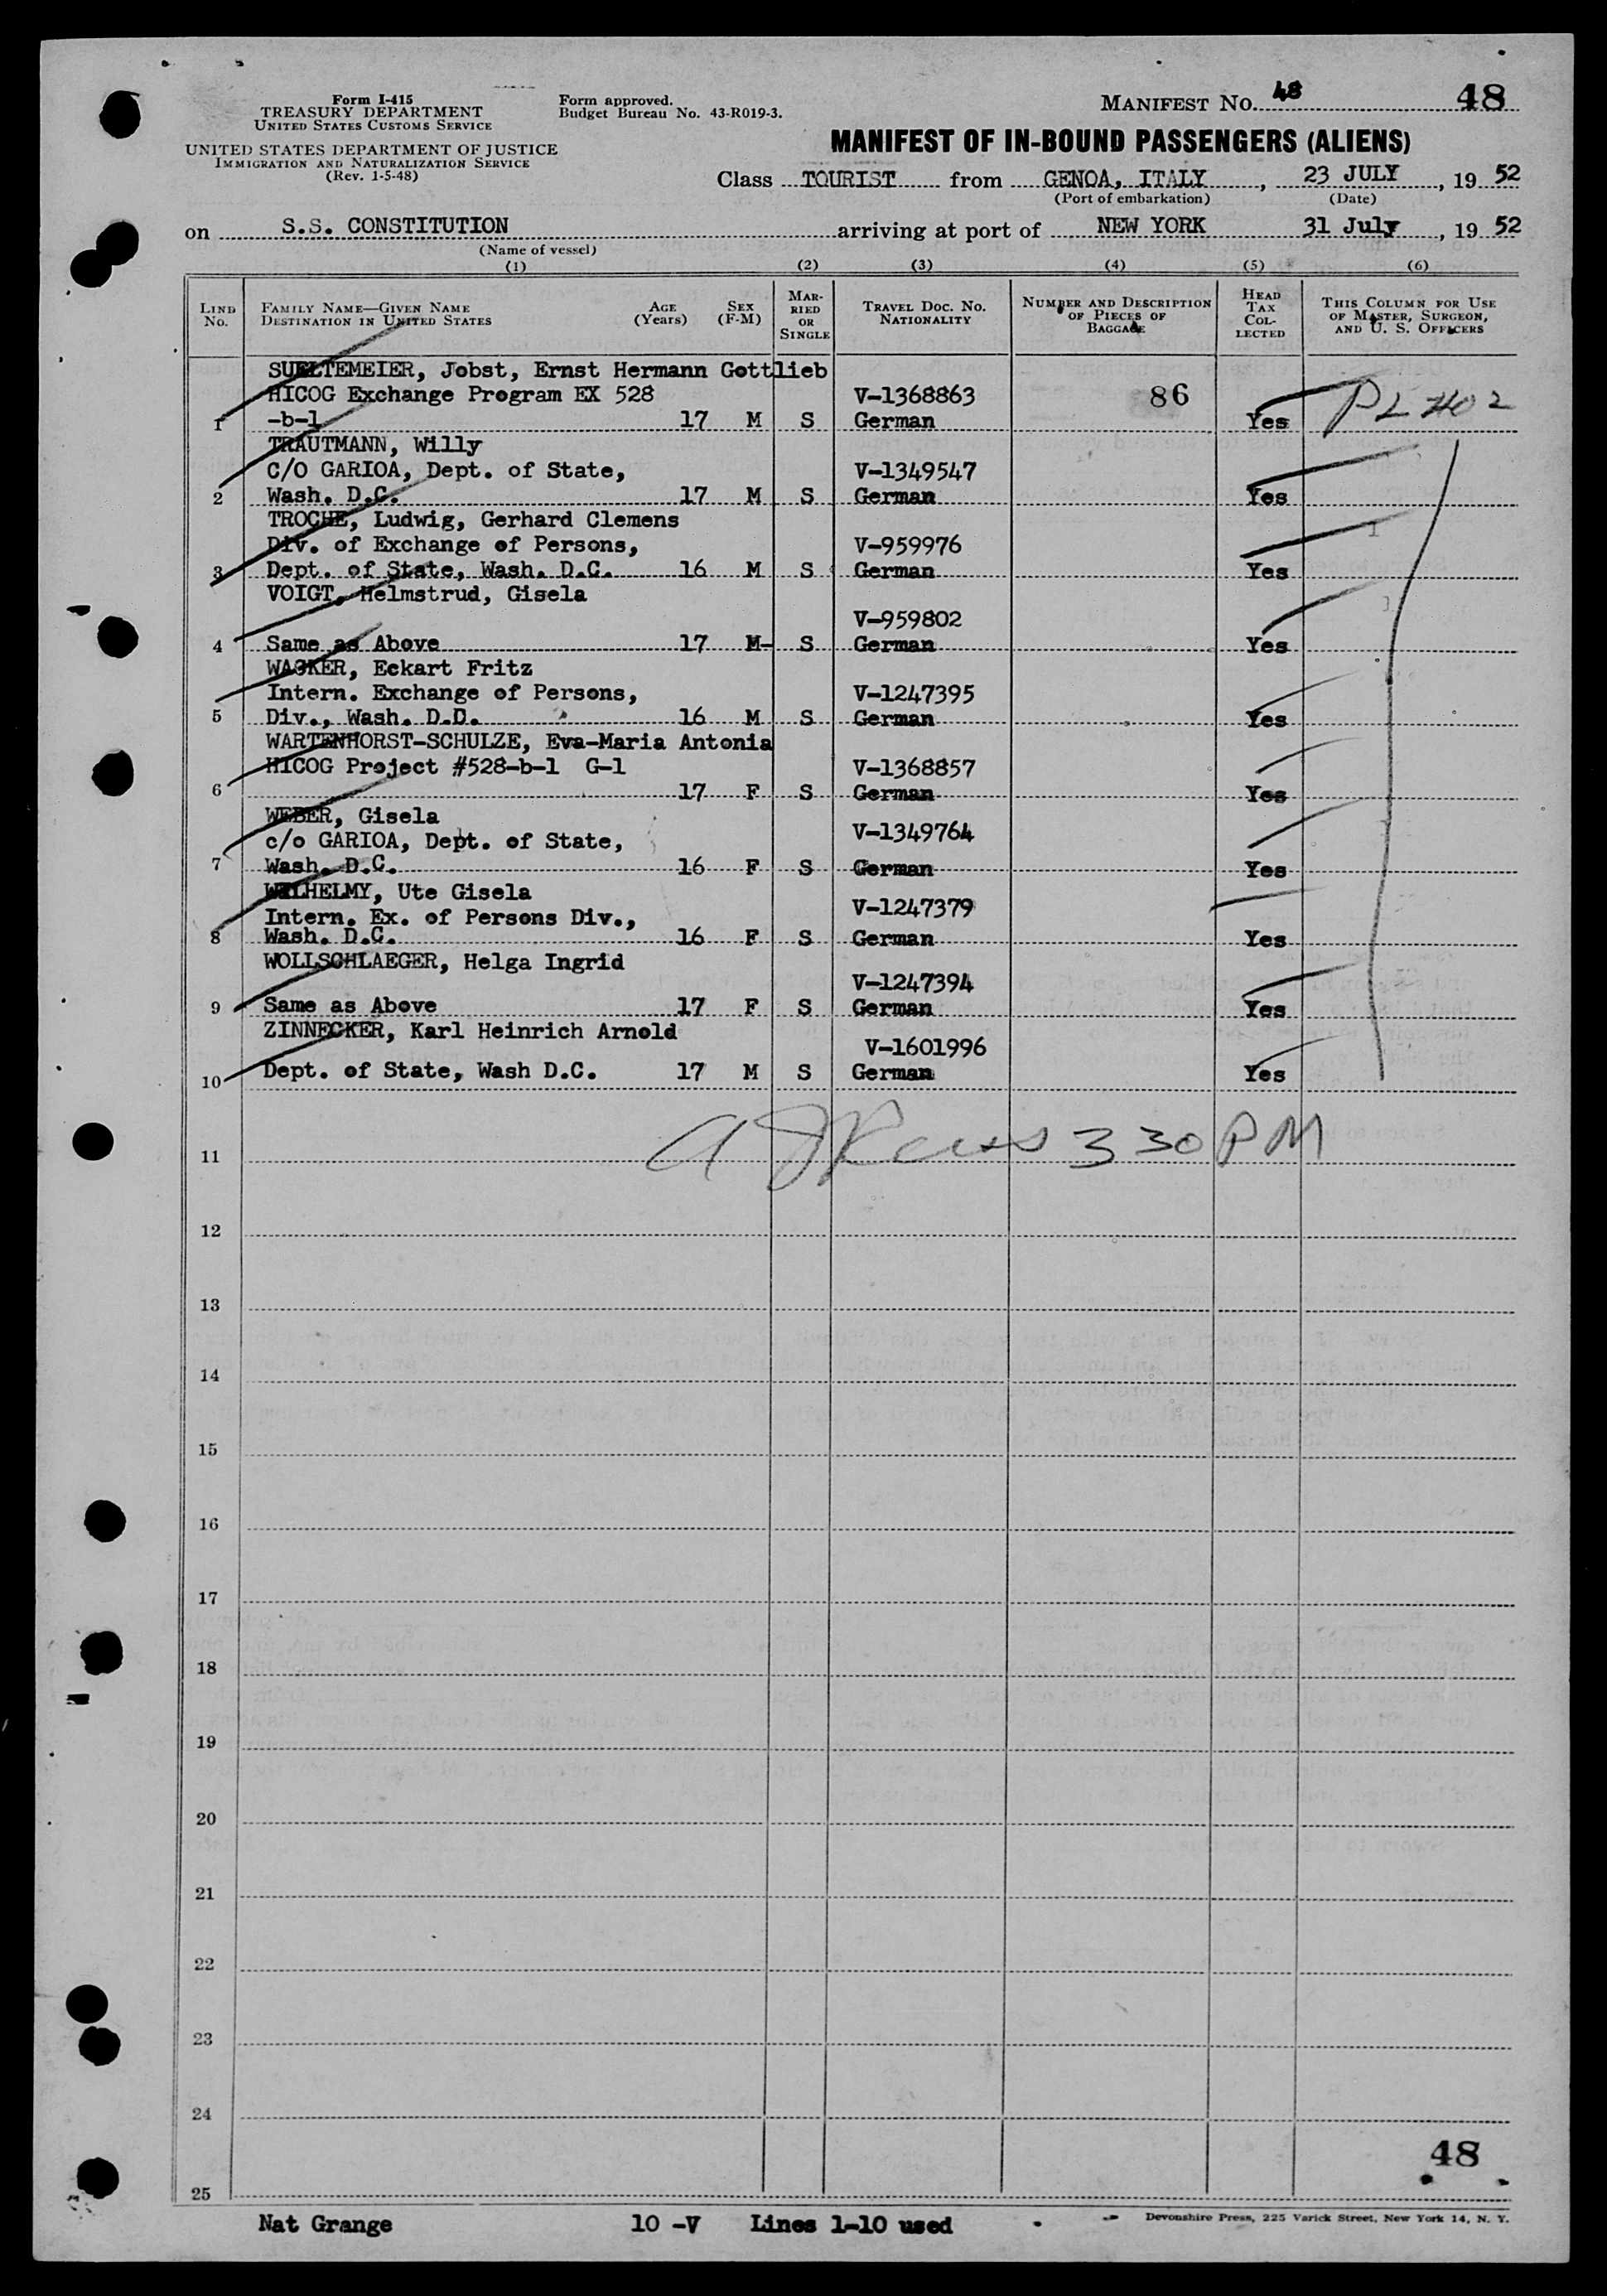 Form I-415
TREASURY DEPARTMENT
UNITED STATES CUSTOMS SERVICE
UNITED STATES DEPARTMENT OF JUSTICE
IMMIGRATION AND NATURALIZATION SERVICE
(Rev. 1-5-48)
Form approved.
Budget Bureau No. 43-R019-3.
MANIFEST NO. 48 48
MANIFEST OF IN-BOUND PASSENGERS (ALIENS)
Class TOURIST from GENOA, ITALY, 23 JULY, 19 52
(Port of embarkation) (Date)
on S.S. CONSTITUTION arriving at port of NEW YORK 31 July, 19 52
(Name of vessel)
(1) (2) (3) (4) (5) (6)
LIND NO. FAMILY NAME—GIVEN NAME DESTINATION IN UNITED STATES AGE (Years) SEX (F-M) MARRIED OR SINGLE TRAVEL DOC. NO. NATIONALITY NUMBER AND DESCRIPTION OF PIECES OF BAGGAGE HEAD TAX COLLECTED THIS COLUMN FOR USE OF MASTER, SURGEON, AND U. S. OFFICERS
SUELTEMEIER, Jobst, Ernst Hermann Gottlieb
HICOG Exchange Program EX 528 V-1368863 86
1 -b-1 17 M S German Yes
TRAUTMANN, Willy
C/O GARIOA, Dept. of State, V-1349547
2 Wash. D.C. 17 M S German Yes
TROCHE, Ludwig, Gerhard Clemens
Div. of Exchange of Persons, V-959976
3 Dept. of State, Wash. D.C. 16 M S German Yes
VOIGT, Helmstrud, Gisela
V-959802
4 Same as Above 17 M- S German Yes
WACKER, Eckart Fritz
Intern. Exchange of Persons, V-1247395
5 Div., Wash. D.D. 16 M S German Yes
WARTENHORST-SCHULZE, Eva-Maria Antonia
HICOG Project #528-b-1 G-1 V-1368857
6 17 F S German Yes
WEBER, Gisela
c/o GARIOA, Dept. of State, V-1349764
7 Wash. D.C. 16 F S German Yes
WILHELMY, Ute Gisela
Intern. Ex. of Persons Div., V-1247379
8 Wash. D.C. 16 F S German Yes
WOLLSCHLAEGER, Helga Ingrid
V-1247394
9 Same as Above 17 F S German Yes
ZINNECKER, Karl Heinrich Arnold
V-1601996
10 Dept. of State, Wash D.C. 17 M S German Yes
11 3 30 PM
12
13
14
15
16
17
18
19
20
21
22
23
24
48
25
Nat Grange 10 -V Lines 1-10 used
Devonshire Press, 225 Varick Street, New York 14, N. Y.